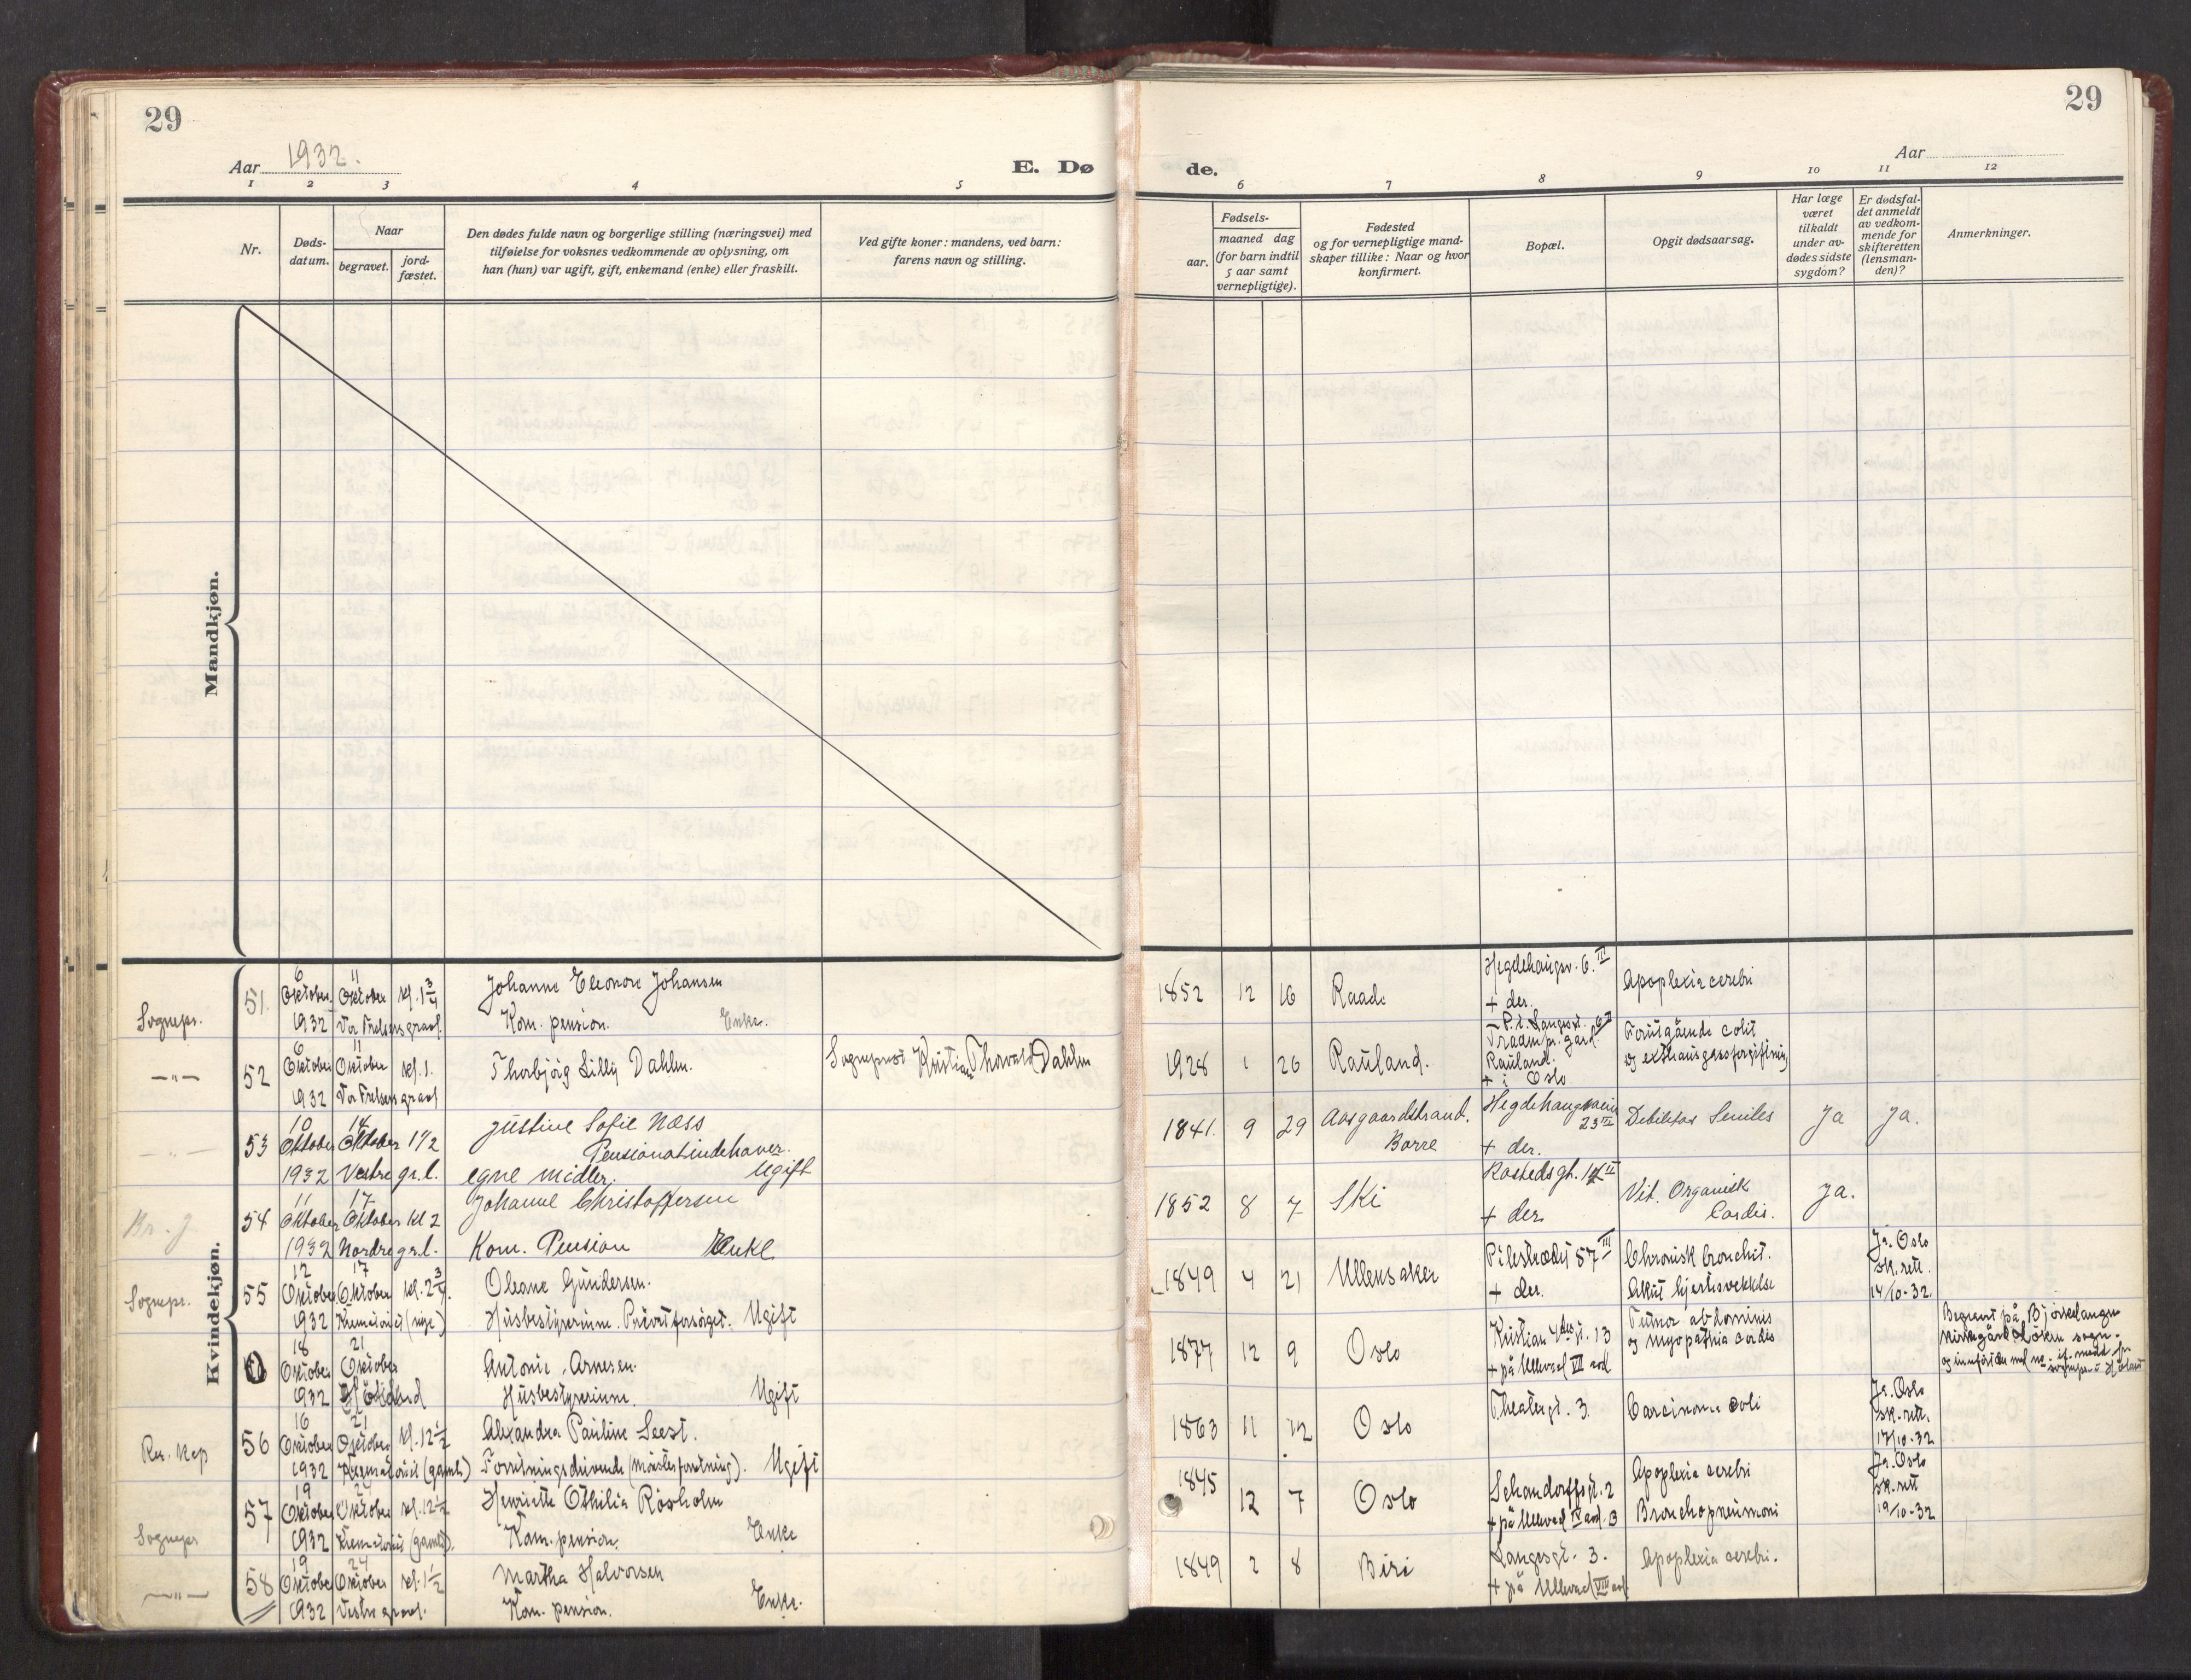 29
29
Aar 1932.
E. Dø
de.
Aar
1 2 3 4 5
6 7 8 9 10 11 12
Nr.
Døds-
datum.
Naar
begravet.
jord-
fæstet.
Den dødes fulde navn og borgerlige stilling (næringsvei) med
tilføielse for voksnes vedkommende av oplysning, om
han (hun) var ugift, gift, enkemand (enke) eller fraskilt.
Ved gifte koner: mandens, ved barn:
farens navn og stilling.
Fødsels-
aar.
maaned dag
(for barn indtil
5 aar samt
vernepligtige).
Fødested
og for vernepligtige mand-
skaper tillike: Naar og hvor
konfirmert.
Bopæl.
Opgit dødsaarsag.
Har læge
været
tilkaldt
under av-
dødes sidste
sygdom?
Er dødsfal-
det anmeldt
av vedkom-
mende for
skifteretten
(lensman-
den)?
Anmerkninger.
Mandkjøn.
Kvindekjøn.
Sognepr.
51.
6 Oktober 1932
11 Oktober Vor Frelsers gravl.
kl. 1 3/4
Johanne Eleonore Johansen
Kom. pension. Enke.
1852 12 16 Raade
Hegdehaugsv. 6. II
+ der.
Apoplexia cerebri
—"—
52
6 Oktober 1932
11 Oktober Vor Frelsers gravl
kl. 1.
Thorbjörg Lilly Dahlen.
Sogneprest Kristian Thorvald Dahlen
1928 1 26 Rauland.
P.t. Langesgt. 6 II
Rauland.
+ i Oslo
Forutgående colit
og exthausgassforgiftning
—"—
53
10 Oktober 1932
14 Oktober Vestre gr.l.
1 1/2
Justine Sofie Næss
Pensionatindehaver.
egne midler. Ugift
1841. 9 29 Aasgaardstrand.
Borre
Hegdehaugsveien
23 III
+ der.
Debilitas Seniles
Ja Ja.
Br. J
54
11 Oktober 1932
17 Oktober Nordre gr.l.
Kl 2
Johanne Christoffersen
Kom. Pension Enke
1852 8 7 Ski
Rostedsgt. 14 II
+ der.
Vit. Organisk
Cordis.
Ja.
Sognepr.
55
12 Oktober 1932
17 Oktober Krematoriet (nye)
kl. 2 3/4.
Oleane Gundersen.
Husbestyrerinne. Privat forsörget. Ugift
1849 4 21 Ullensaker
Pilestrædet 57 III
+ der.
Chronisk bronchit.
Akut hjertesvekkelse
Ja. Oslo
sk. rett.
14/10-32.
0
18 Oktober 1932
21 Oktober
Antonie Arnesen.
Husbestyrerinne. Ugift
1877 12 9 Oslo
Kristian 4des gt. 13
+ på Ullevaal VII avd
Tumor abdominis
og myopathia cordis
Begravet på Björkelangen
kirkegård Löken sogn.
Res. kap
56
16 Oktober 1932
21 Oktober Krematoriet (gamle)
kl. 12 1/2
Alexandra Pauline Seest.
Forretningsdrivende (möisteforretning). Ugift
1863 11 12 Oslo
Theatergt. 3.
Carcinoma coli
Ja. Oslo
sk. rett.
17/10-32
Sognepr
57
19 Oktober 1932
24 Oktober Krematoriet (gamle).
kl. 12 1/2
Henriette Othilia Rosholm
Kom. pension. Enke
1845 12 7 Oslo
Schandorffsgt. 2
+ på Ullevaal IV avd. B
Apoplexia cerebri
Bronchopneumoni
Ja. Oslo
sk. rett
19/10-32
—"—
58
19 Oktober 1932
24 Oktober Vestre gravl.
kl. 1 1/2
Martha Halvorsen
Kom. pension. Enke.
1849 2 8 Biri
Langesgt. 3.
+ på Ullevaal VIII avd
Apoplexia cerebri.